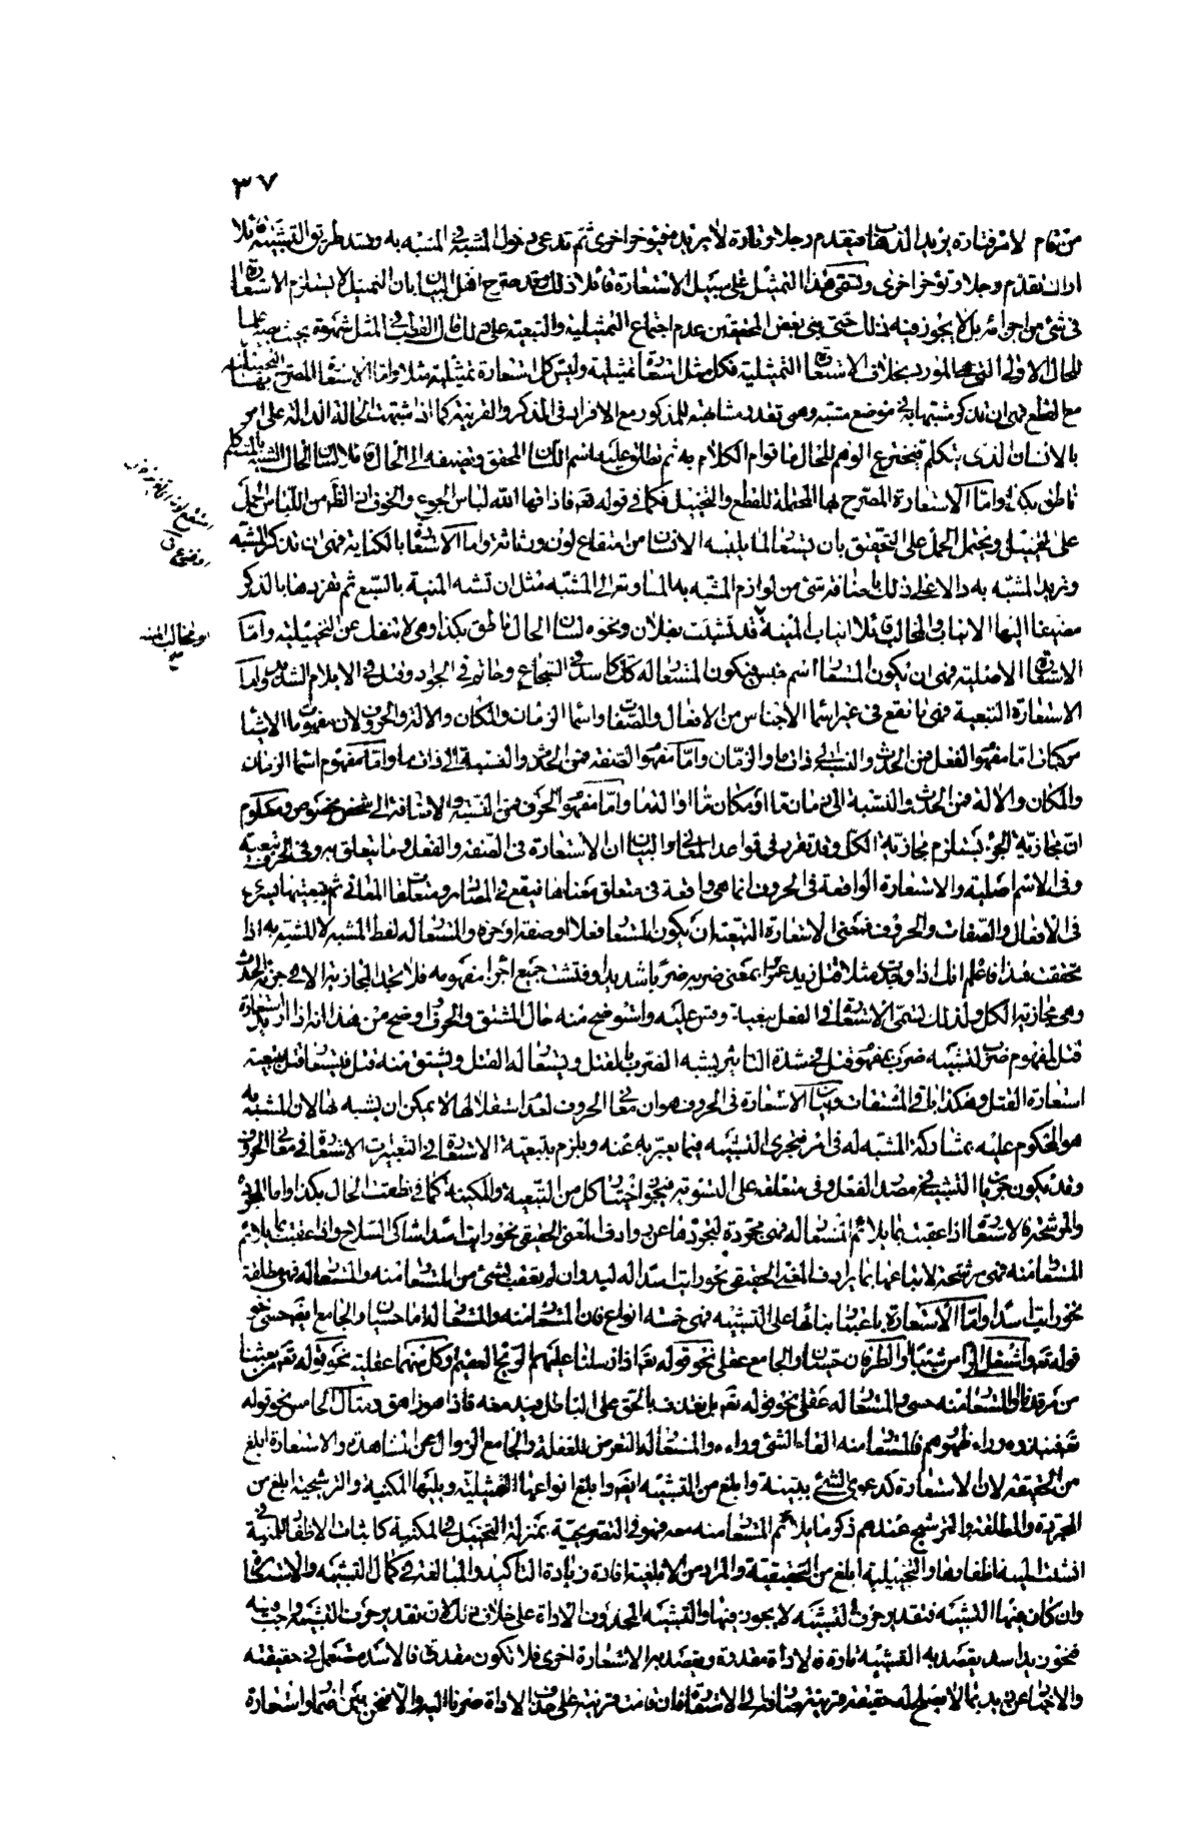 ٣٧
من قام لامر فتارة يريد الذهاب فيقدم رجلا وتارة لا يريد فيؤخر اخرى ثم تدعى دخول المشبه في المشبه به وتسد طريق التشبيه قائلا
اراك تقدم رجلا وتؤخر اخرى وتسمى هذا التمثيل على سبيل الاستعارة قائلا ذلك وقد صرح اهل البيان بان التمثيل لا يستلزم الاستعارة
في شئ من اجزائه بل لا يجوز فيه ذلك حتى بنى بعض المحققين عدم اجتماع التمثيلية والتبعية على ذلك قال القطب في المثل شهرة بحيث يصير علما
للحال الاولى التي هي المورد بخلاف الاستعارة التمثيلية فكل مثل استعارة تمثيلية وليس كل استعارة تمثيلية مثلا واما الاستعارة المصرح بها التخييلية
مع القطع فهي ان تذكر مشبها به في موضع مشبه وهمي تقدر مشابهته للمذكور مع الافراد في الذكر والقرينة كما اذا شبهت الحالة الدالة على امر
بالانسان الذي يتكلم فيخترع الوهم للحال ما قوام الكلام به ثم تطلق عليه اسم اللسان المحقق وتضيفه الى الحال قائلا لسان الحال الشبيه بالمتكلم
ناطق بكذا واما الاستعارة المصرح بها المحتملة للقطع والتخييل فكما في قوله تعه فاذاقها الله لباس الجوع والخوف اذ الظهر من اللباس الحمل
على التخييل ويحتمل الحمل على التحقيق بان يستعار لما يلبسه الانسان من امتقاع لون ورثاثة واما الاستعارة بالكناية فهي ان تذكر المشبه
وتريد المشبه به دالا على ذلك باضافة شئ من لوازم المشبه به المساوية الى المشبه مثل ان تشبه المنية بالسبع ثم تفردها بالذكر
مضيفا اليها الانياب والمخالب قائلا انياب المنية قد نشبت بفلان ونحوه لسان الحال ناطق بكذا وهي لا تنفك عن التخييلية واما
الاستعارة الاصلية فهي ان يكون المستعار اسم جنس فيكون المستعار له كذلك كاسد في الشجاع وحاتم في الجواد وقتل في الايلام الشديد واما
الاستعارة التبعية فهي ما تقع في غير اسماء الاجناس من الافعال والصفات واسماء الزمان والمكان والالة والحروف لان مفهومات الاشياء
مركبات اما مفهوم الفعل فمن الحدث والنسبة الى ذات ما والزمان واما مفهوم الصفة فمن الحدث والنسبة الى ذات ما واما مفهوم اسماء الزمان
والمكان والالة فمن الحدث والنسبة الى زمان ما او مكان ما او الة ما واما مفهوم الحرف فمن النسبة والاضافة الى شخص مخصوص ومعلوم
ان مجازية الجزء يستلزم مجازية الكل وقد تقرر في قواعد المعاني والبيان ان الاستعارة في الصفة والفعل وما يتعلق به وفي الحرف تبعية
وفي الاسم اصلية والاستعارة الواقعة في الحروف انما هي واقعة في متعلق معناها فيقع في المصادر ومتعلقات المعاني ثم بتبعيتها يسرى
في الافعال والصفات والحروف فمعنى الاستعارة التبعية ان يكون المستعار فعلا او صفة او حرفا والمستعار له لفظ المشبه لا المشبه به اذا
تحققت هذا فاعلم انك اذا وجدت مثلا قتل زيد عمرا بمعنى ضربه ضربا شديدا وفتشت جميع اجزاء مفهومه فلا تجد المجازية الا في جزئه الحدث
وهي مجازية الكل ولذلك تسمى الاستعارة في الفعل تبعية وقس عليه واستوضح منه حال المشتق والحرف واوضح من هذا انه اذا اريد استعارة
قتل لمفهوم ضرب لتشبيه ضرب بمفهوم قتل في شدة التاثير يشبه الضرب بالقتل ويستعار له القتل ويشتق منه قتل فيستعار قتل بتبعية
استعارة القتل وهكذا باقي المشتقات وبيان الاستعارة في الحروف هو ان معاني الحروف لعدم استقلالها لا يمكن ان يشبه بها لان المشبه به
هو المحكوم عليه بمشاركة المشبه له في امر فيجرى التشبيه فيما يعبر به عنه ويلزم بتبعية الاستعارة في التعبيرات الاستعارة في معاني الحروف
وقد يكون جريان التشبيه في مصدر الفعل وفي متعلقه على التسوية فيجوز اختيار كل من التبعية والمكنية كما في نطقت الحال بكذا واما المجردة
والمرشحة فالاستعارة اذا عقبت بما يلائم المستعار له فهي مجردة لتجردها عن روادف المعنى الحقيقي نحو رايت اسدا شاكي السلاح واذا عقبت بما يلائم
المستعار منه فهي مرشحة لاتباعها بما يرادف المعنى الحقيقي نحو رايت اسدا له لبد وان لم يعقب بشئ من المستعار منه والمستعار له فهي مطلقة
نحو رايت اسدا واما الاستعارة باعتبار بنائها على التشبيه فهي خمسة انواع فان المستعار منه والمستعار له اما حسيان والجامع ايضا حسي نحو
قوله تعه واشتعل الراس شيبا والطرفان حسيان والجامع عقلي نحو قوله تعه اذ ارسلنا عليهم الريح العقيم وكل منهما عقلية نحو قوله تعه من بعثنا
من مرقدنا والمستعار منه حسي والمستعار له عقلي نحو قوله تعه بل نقذف بالحق على الباطل فيدمغه فاذا هو زاهق ومثال الخامس نحو قوله
تعه فنبذوه وراء ظهورهم فالمستعار منه القاء الشئ وراءه والمستعار له التعرض للغفلة والجامع الزوال عن المشاهدة والاستعارة ابلغ
من الحقيقة لان الاستعارة كدعوى الشئ ببينة وابلغ من التشبيه ايضا وابلغ انواعها التمثيلية ويليها المكنية والترشيحية ابلغ من
المجردة والمطلقة والترشيح عندهم ذكر ما يلائم المستعار منه معه فهو في التصريحية بمنزلة التخييل في المكنية كاثبات الاظفار للمنية في
انشبت المنية اظفارها والتخييلية ابلغ من التحقيقية والمراد من الابلغية افادة زيادة التاكيد والمبالغة في كمال التشبيه والاستعارة
وان كان فيها التشبيه فتقدير حرف التشبيه لا يجوز فيها والتشبيه المحذوف الاداة على خلاف ذلك لان تقدير حرف التشبيه واجب فيه
فنحو زيد اسد يقصد به التشبيه تارة فالاداة مقدرة ويقصد به الاستعارة اخرى فلا تكون مقدرة فالاسد مستعمل في حقيقته
والاخبار عن زيد بما لا يصلح له حقيقة قرينة صارفة الى الاستعارة فان قامت قرينة على حذف الاداة صرنا اليه والا فنحن بين اضمار واستعارة